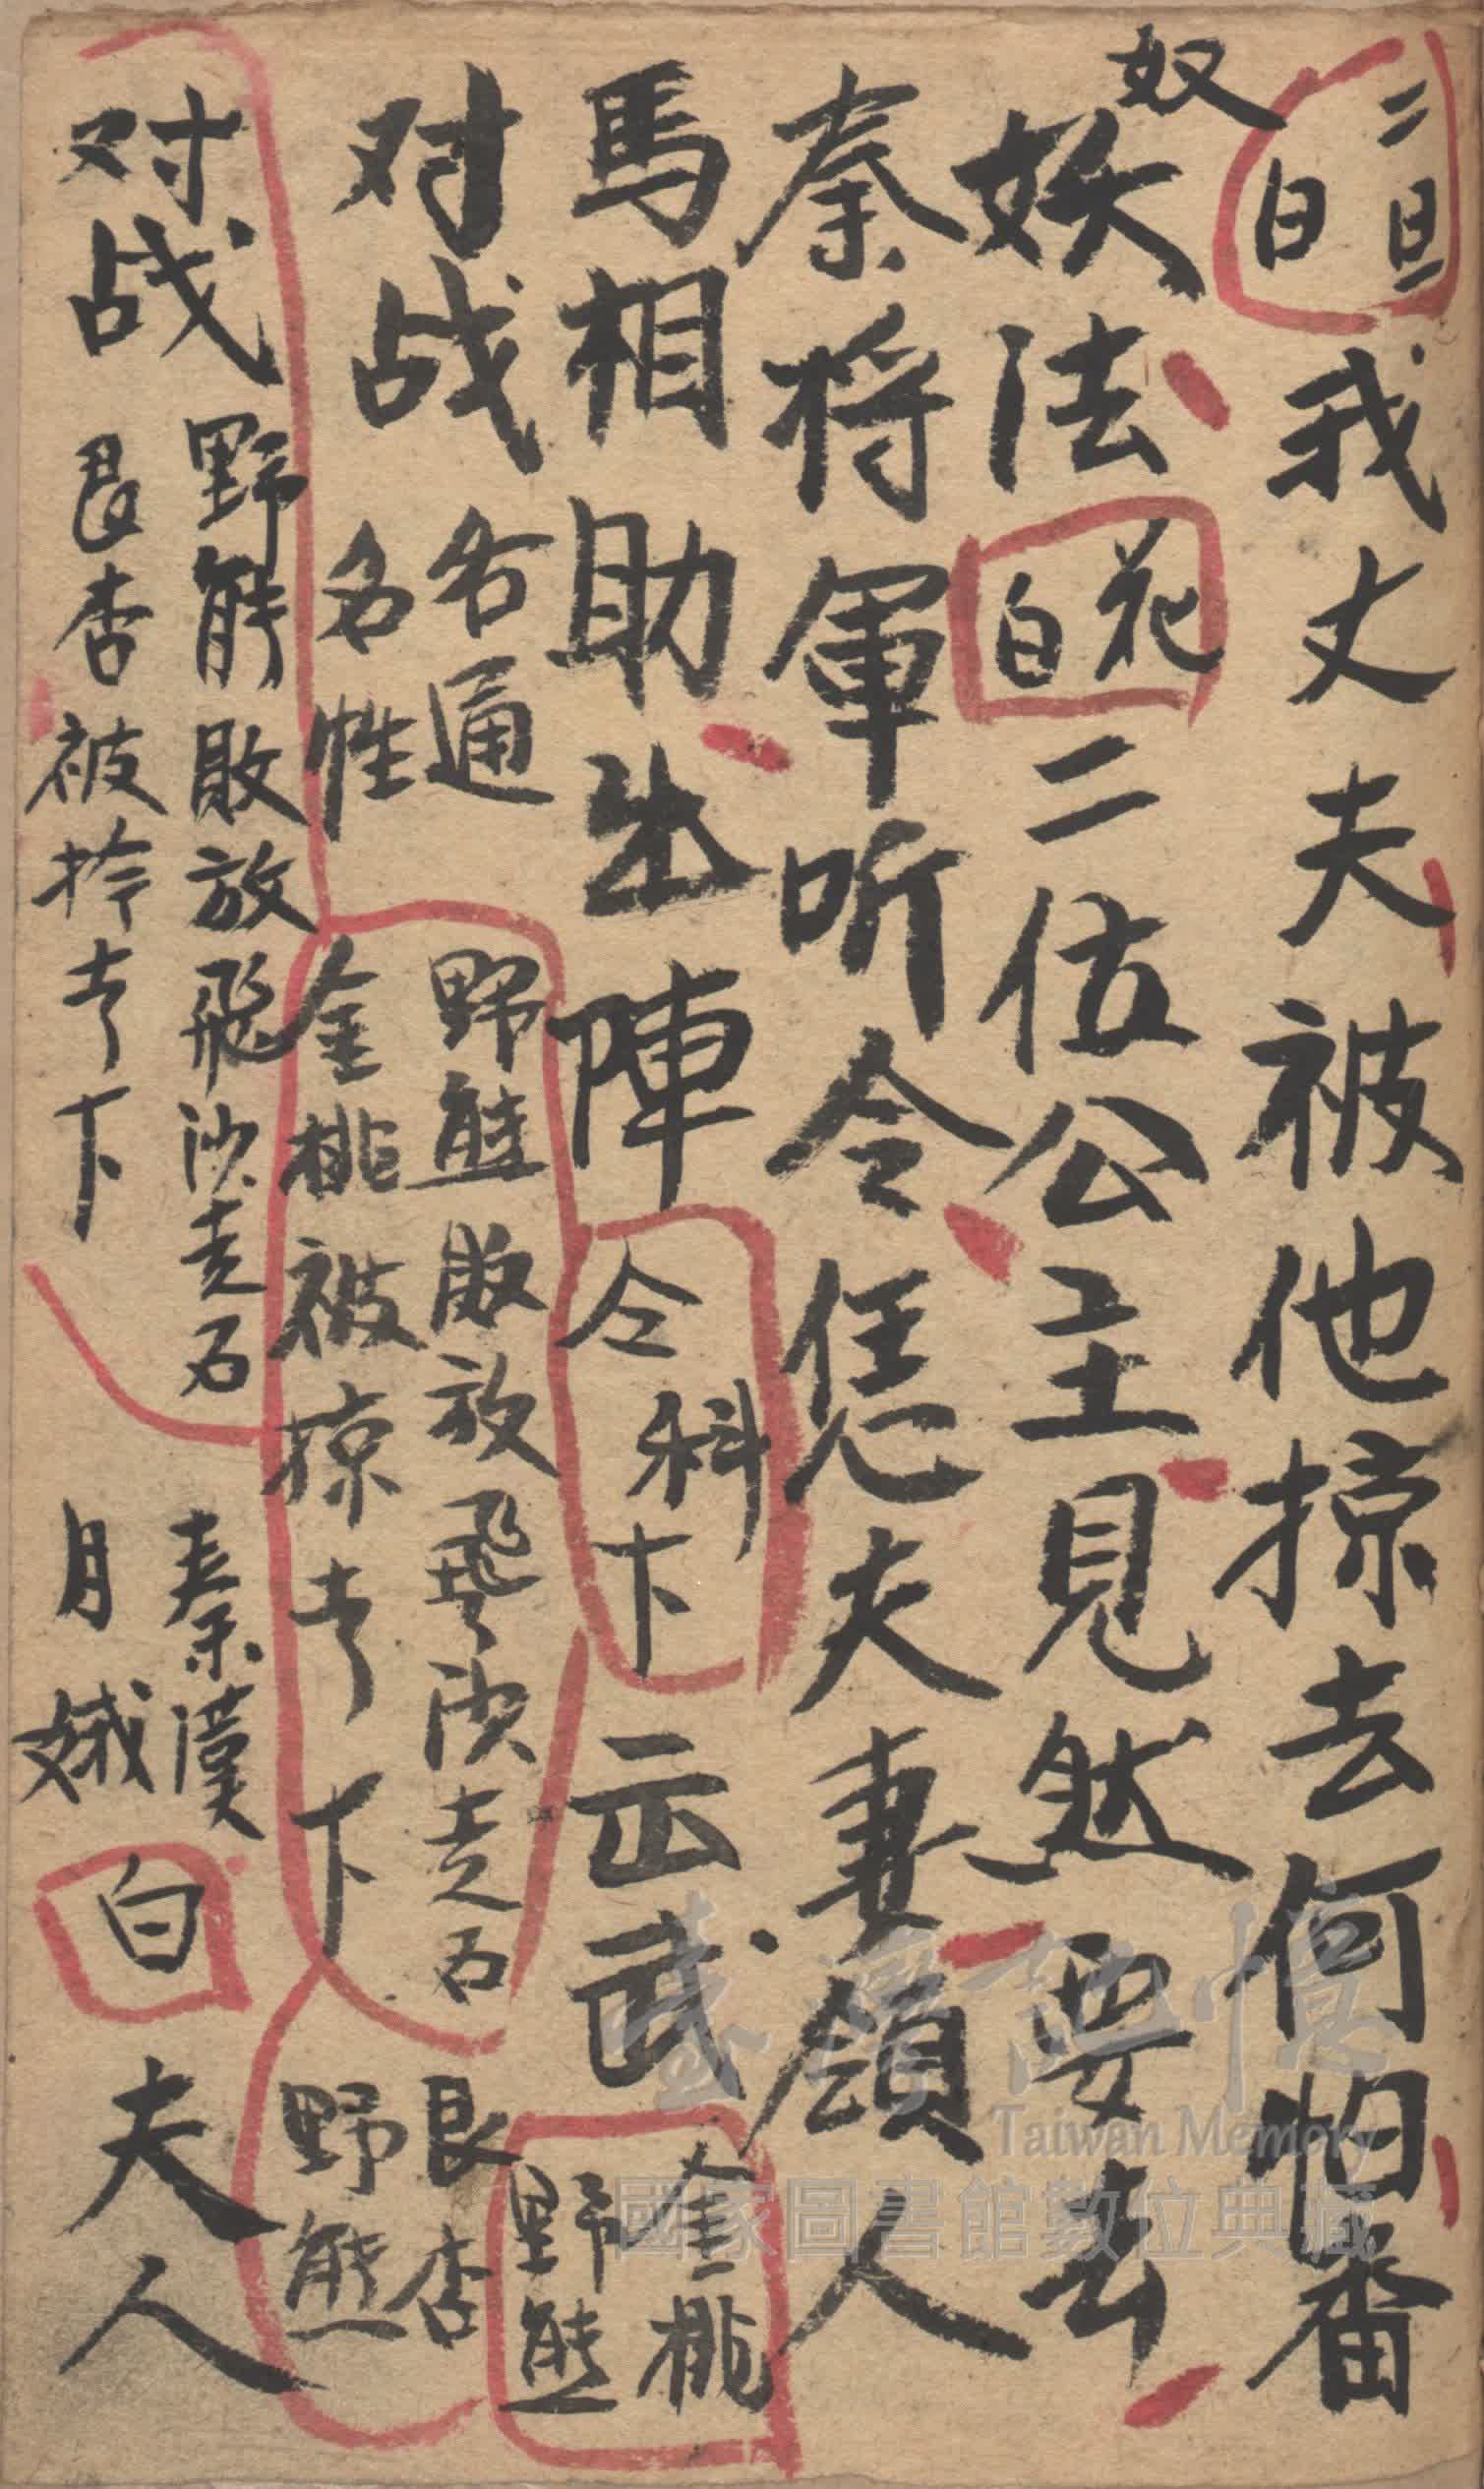 二旦白我丈夫被他掠去何怕番
奴妖法花白二位公主見然要去
秦將軍听令恁夫妻領人
馬相助出陣仝科下示武金桃野熊
对战各通名性野熊敗放飛沙走石金桃被掠去下艮杏野熊
对战野熊敗放飛沙走石艮杏被拎去下秦漢月娥白夫人
臺灣記憶
Taiwan Memory
國家圖書館數位典藏